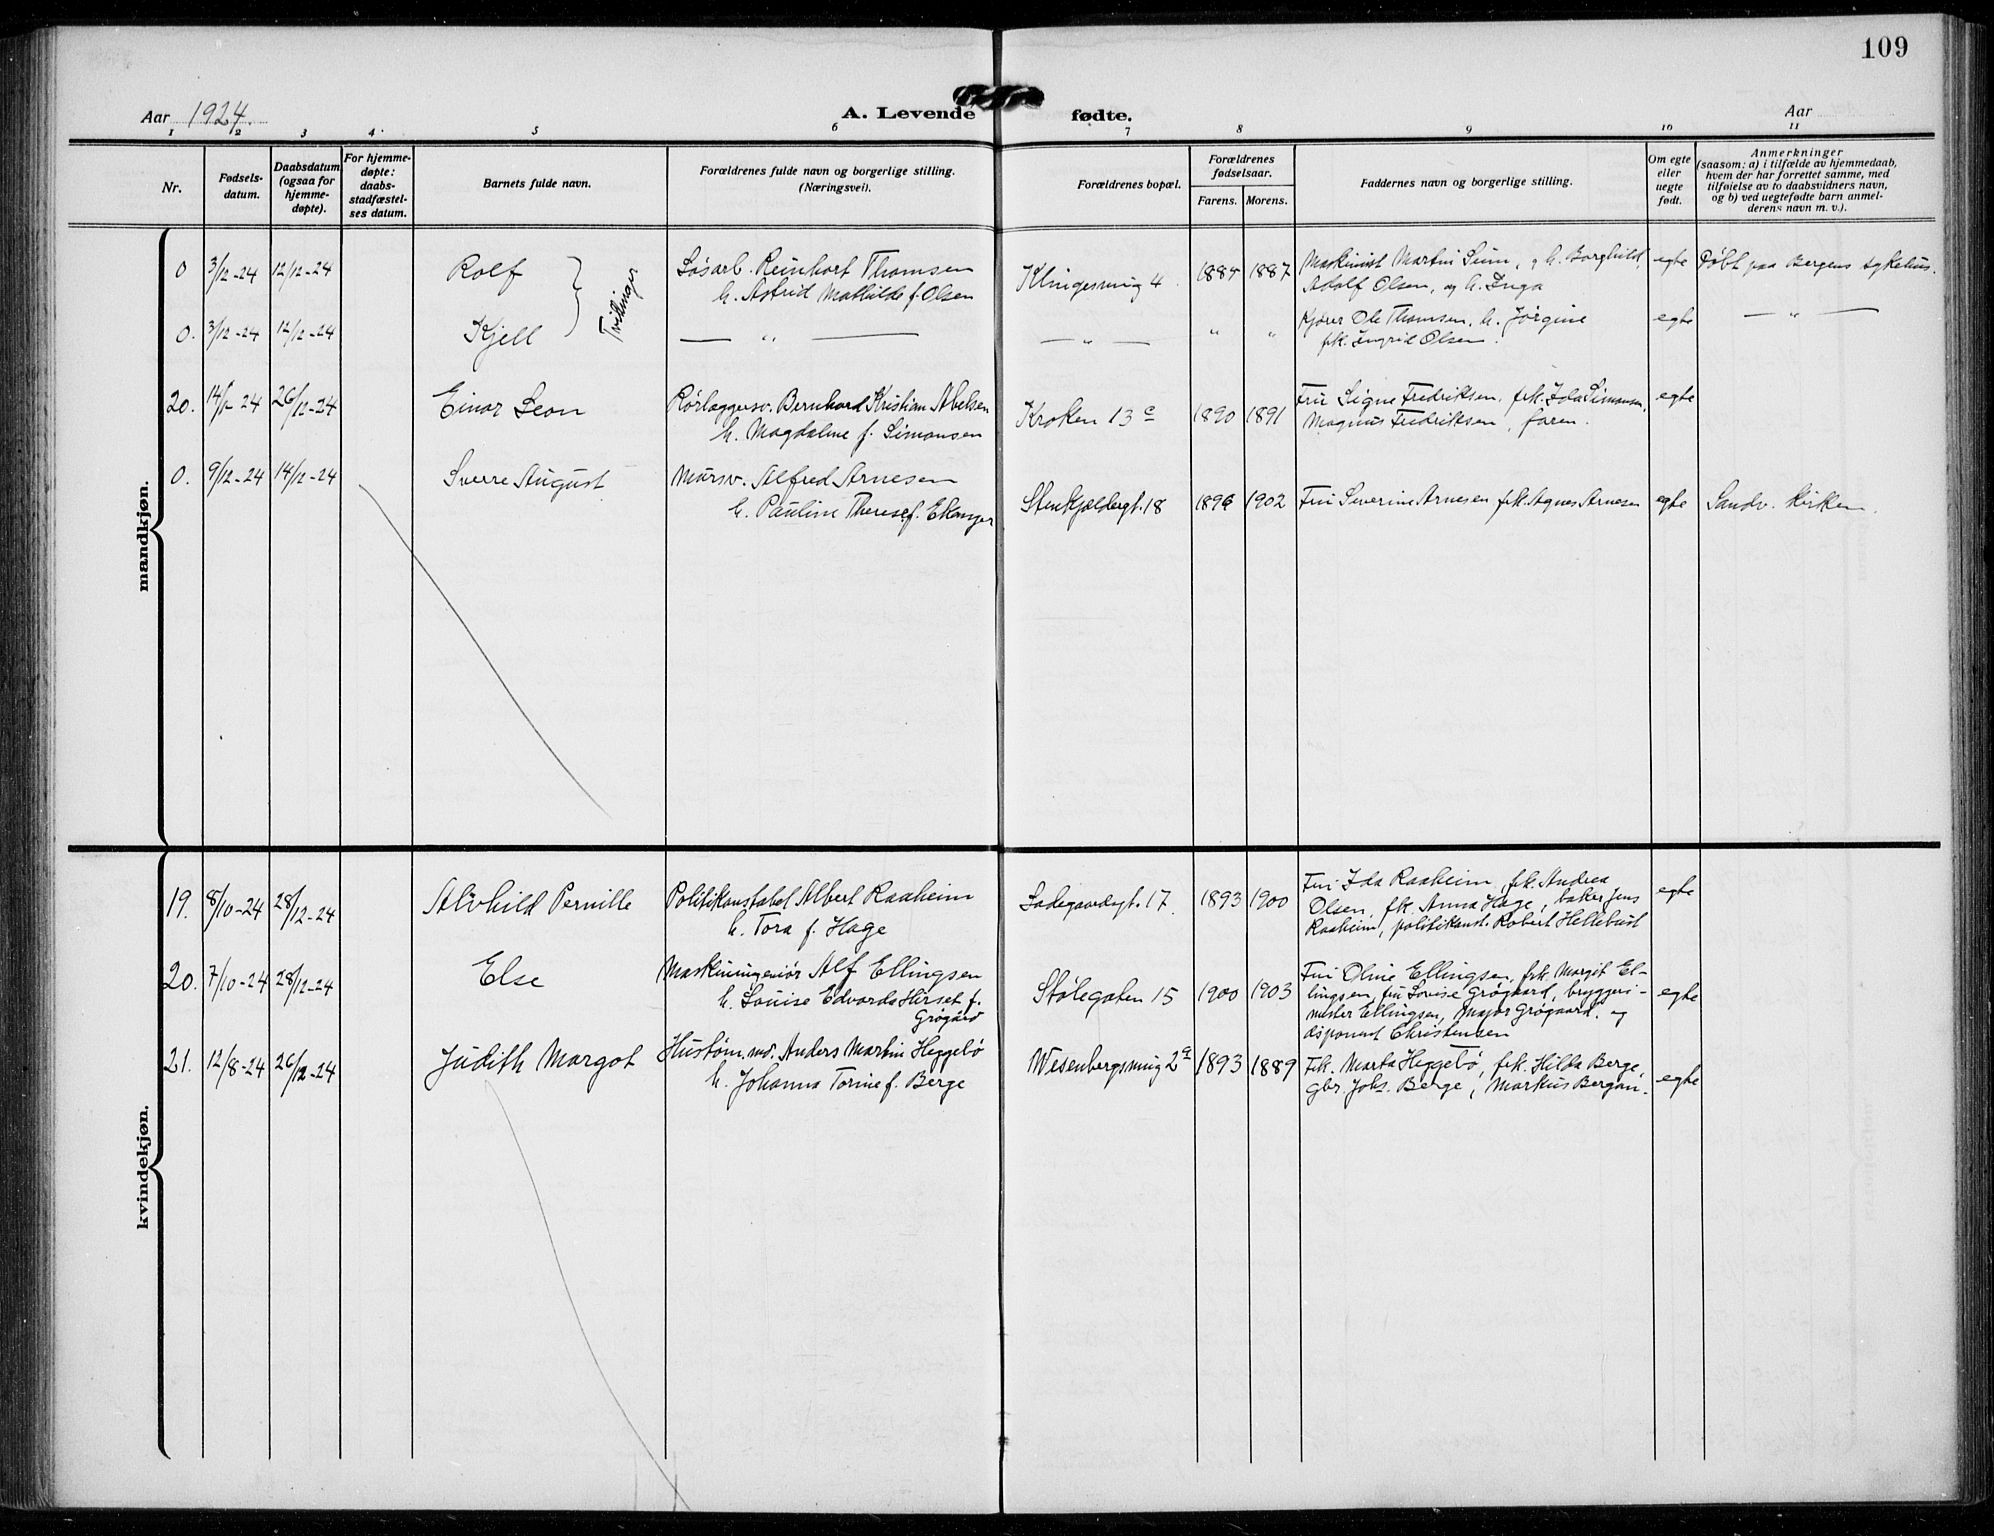 109
Aar 1924.
A. Levende fødte.
Aar
1 2 3 4 5 6 7 8 9 10 11
Nr.
Fødsels-
datum.
Daabsdatum
(ogsaa for
hjemme-
døpte).
For hjemme-
døpte:
daabs-
stadfæstel-
ses datum.
Barnets fulde navn.
Forældrenes fulde navn og borgerlige stilling.
(Næringsvei).
Forældrenes bopæl.
Forældrenes
fødselsaar.
Farens. Morens.
Faddernes navn og borgerlige stilling.
Om egte
eller
uegte
født.
Anmerkninger
(saasom: a) i tilfælde av hjemmedaab,
hvem der har forrettet samme, med
tilføielse av to daabsvidners navn,
og b) ved uegtefødte barn anmel-
derens navn m. v.).
mandkjøn.
0 3/12-24 12/12-24 Rolf
Tvillinger
Løsarb. Reinhart Thomsen
h. Astrid Mathilde f. Olsen
Klingesmug 4. 1885 1887
Maskinist Martin Sunn, og h. Borghild,
Adolf Olsen, og h. Inga
egte Døbt paa Bergens sykehus.
0. 3/12-24 12/12-24 Kjell — " — — " — " "
Kjører Ole Thomsen, h. Jørgine
frk. Ingrid Olsen.
egte — " —
20. 14/1-24 26/12-24 Einar Leon
Rørlæggersv. Bernhard Kristian Abelsen
h. Magdalene f. Simonsen
Kroken 13 c 1890 1891
Fru Signe Fredriksen, frk. Ida Simonsen,
Magnus Fredriksen, faren.
egte
0. 9/12-24 14/12-24 Sverre August
Mursv. Alfred Arnesen
h. Pauline Therese f. Ekanger
Stenkjeldergt. 18 1896 1902 Fru Severine Arnesen frk. Agnes Arnesen egte Sandv. kirken.
kvindekjøn.
19. 8/10-24 28/12-24 Alvhild Pernille
Politikonstabel Albert Raaheim
h. Tora f. Hage
Ladegaardsgt. 17. 1893 1900
Fru Ida Raaheim, frk. Andrea
Olsen, frk. Anna Hage, baker Jens
Raaheim, politikonst. Robert Hellebust
egte
20. 7/10-24 28/12-24 Else
Maskiningeniør Alf Ellingsen
h. Louise Edvarda Hirset f.
Grøgård
Stølegaten 15 1900 1903
Fru Oline Ellingsen, frk. Margit El-
lingsen, fru Lovise Grøgaard, bryggeri-
mester Ellingsen, Major Grøgaard, og
disponent Christensen
egte
21. 12/8-24 26/12-24 Judith Margot
Hustøm.md. Anders Martin Heggebø
h. Johanna Torine f. Berge
Wesenbergsmug 2 a 1893 1889
Frk. Marta Heggebø, frk. Hilda Berge,
gbr. Johs. Berge, Markus Bergan.
egte